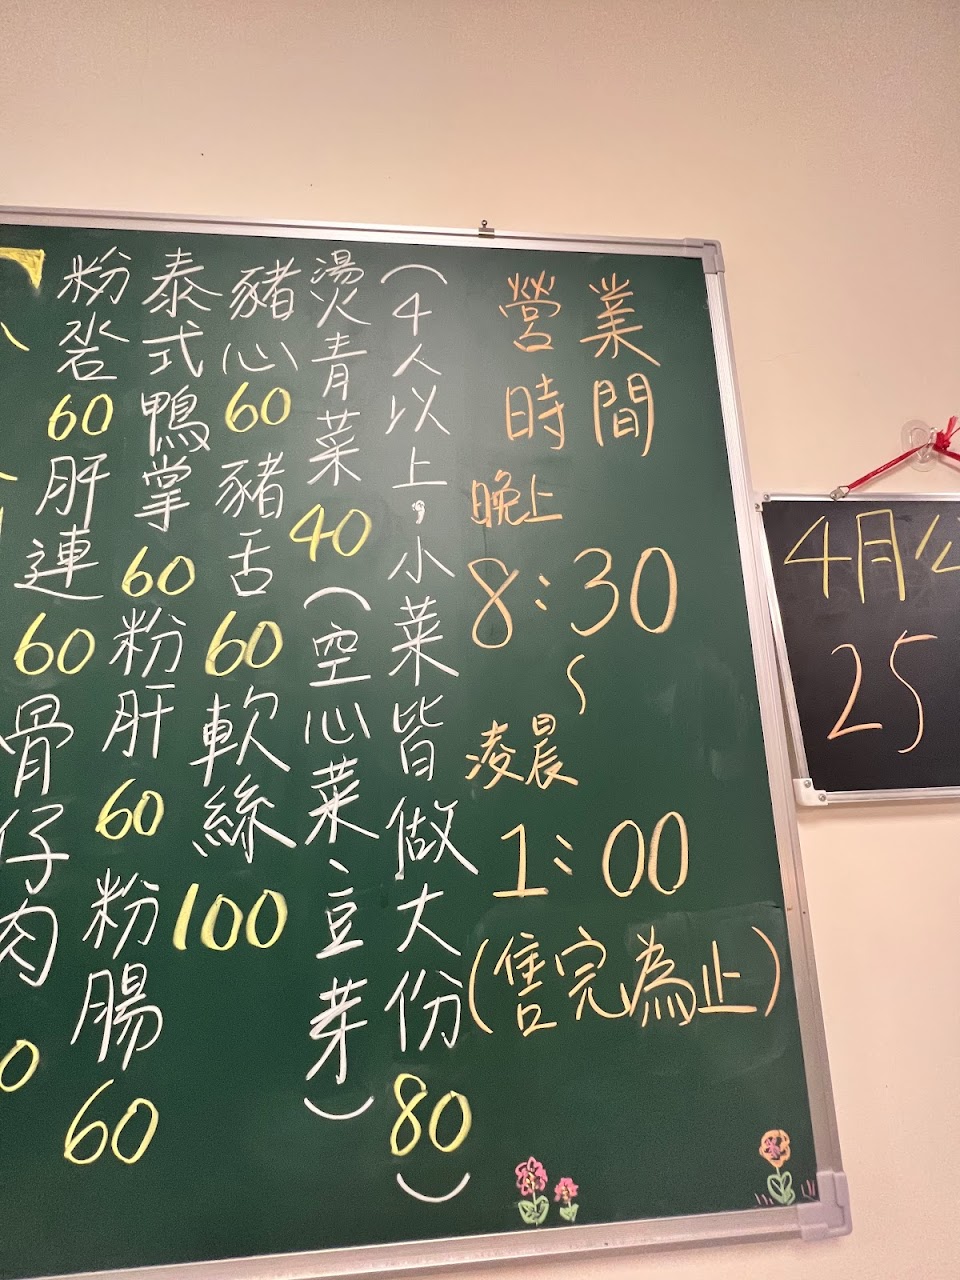 營業
時間
晚上
8:30
~
凌晨
1:00
(售完為止)
(4人以上,小菜皆做大份80)
燙青菜40(空心菜、豆芽)
豬心60 豬舌60 軟絲100
泰式鴨掌60 粉肝60 粉腸60
粉粩60 肝連60 骨仔肉
4月
25